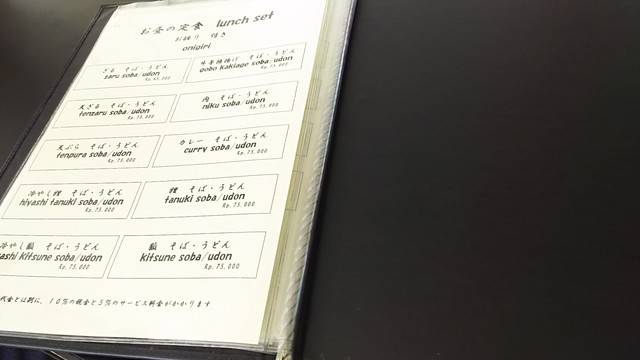 お昼の定食 lunch set
お握り 付き
onigiri
ざる そば・うどん
zaru soba/udon
Rp.65.000
牛蒡掻揚げ そば・うどん
gobo kakiage soba/udon
Rp.75.000
天ざる そば・うどん
tenzaru soba/udon
Rp.75.000
肉 そば・うどん
niku soba/udon
Rp.75.000
天ぷら そば・うどん
tenpura soba/udon
Rp.75.000
カレー そば・うどん
curry soba/udon
Rp.75.000
冷やし狸 そば・うどん
hiyashi tanuki soba/udon
Rp.75.000
狸 そば・うどん
tanuki soba/udon
Rp.75.000
冷やし狐 そば・うどん
ashi kitsune soba/udon
Rp.75.000
狐 そば・うどん
kitsune soba/udon
Rp.75.000
代金とは別に、10%の税金と5%のサービス料金がかかります